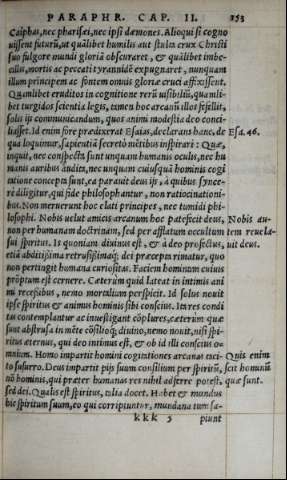 PARAPHR. CAP. II. 253
Caiphas, nec pharisæi, nec ipsi dæmones. Alioqui si cogno
uissent futurū, ut quālibet humilis aut stulta crux Christi
suo fulgore mundi gloriā obscuraret, & quālibet imbe-
cillis, mortis ac peccati tyrannidē expugnaret, nunquam
illum principem ac fontem omnis gloriæ cruci affixissent.
Quamlibet eruditos in cognitione rerū uisibiliū, quamli
bet turgidos scientia legis, tamen hoc arcanū illos fefellit,
solis ijs communicandum, quos animi modestia deo conci-
liasset. Id enim fore prædixerat Esaias, declarans hanc, de
Esa. 46.
qua loquimur, sapientiā secretò mētibus inspirari: Quæ,
inquit, nec conspecta sunt unquam humanis oculis, nec hu
manis auribus audita, nec unquam cuiusquā hominis cogi
tatione concepta sunt, ea parauit deus ijs, à quibus synce-
rè diligitur, qui fide philosophantur, non ratiocinationi-
bus. Non meruerunt hoc elati principes, nec tumidi phi-
losophi. Nobis uelut amicis arcanum hoc patefecit deus,
Nobis au-
non per humanam doctrinam, sed per afflatum occultum
tem reuela-
sui spiritus. Is quoniam diuinus est, & à deo profectus,
uit deus.
etiā abditissima retrusissimaq; dei præcepta rimatur, quo
non pertingit humana curiositas. Faciem hominum cuiuis
prōptum est cernere. Cæterùm quid lateat in intimis ani
mi recessibus, nemo mortalium perspicit. Id solus nouit
ipse spiritus & animus hominis sibi conscius. Itē res condi
tas contemplantur ac inuestigant cōplures, cæterùm quæ
sunt abstrusa in mēte cōsilioq; diuino, nemo nouit, nisi spi-
ritus æternus, qui deo intimus est, & ob id illi conscius o-
mnium. Homo impartit homini cogitationes arcanas exci-
Quis enim
to susurro. Deus impartit pijs suum consilium per spiritū,
scit hominū
nō hominis, qui præter humanas res nihil adferre potest,
quæ sunt.
sed dei. Qualis est spiritus, talia docet. Habet & mundus
hic spiritum suum, eo qui corripiuntur, mundana tum sa-
k k k 3 piunt